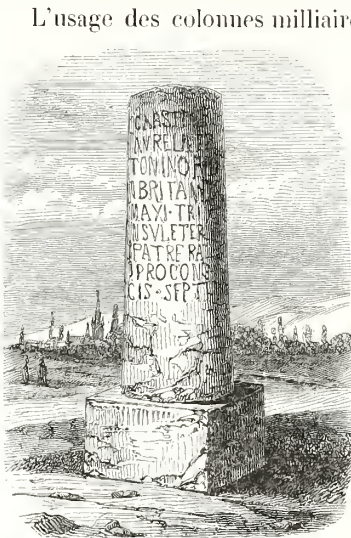 L'usage des colonnes milliair
AVRELI
TONINO
BRITAN
MAXI·TR
SVLETER
PATRERA
PROCONS
CIS·SEPT